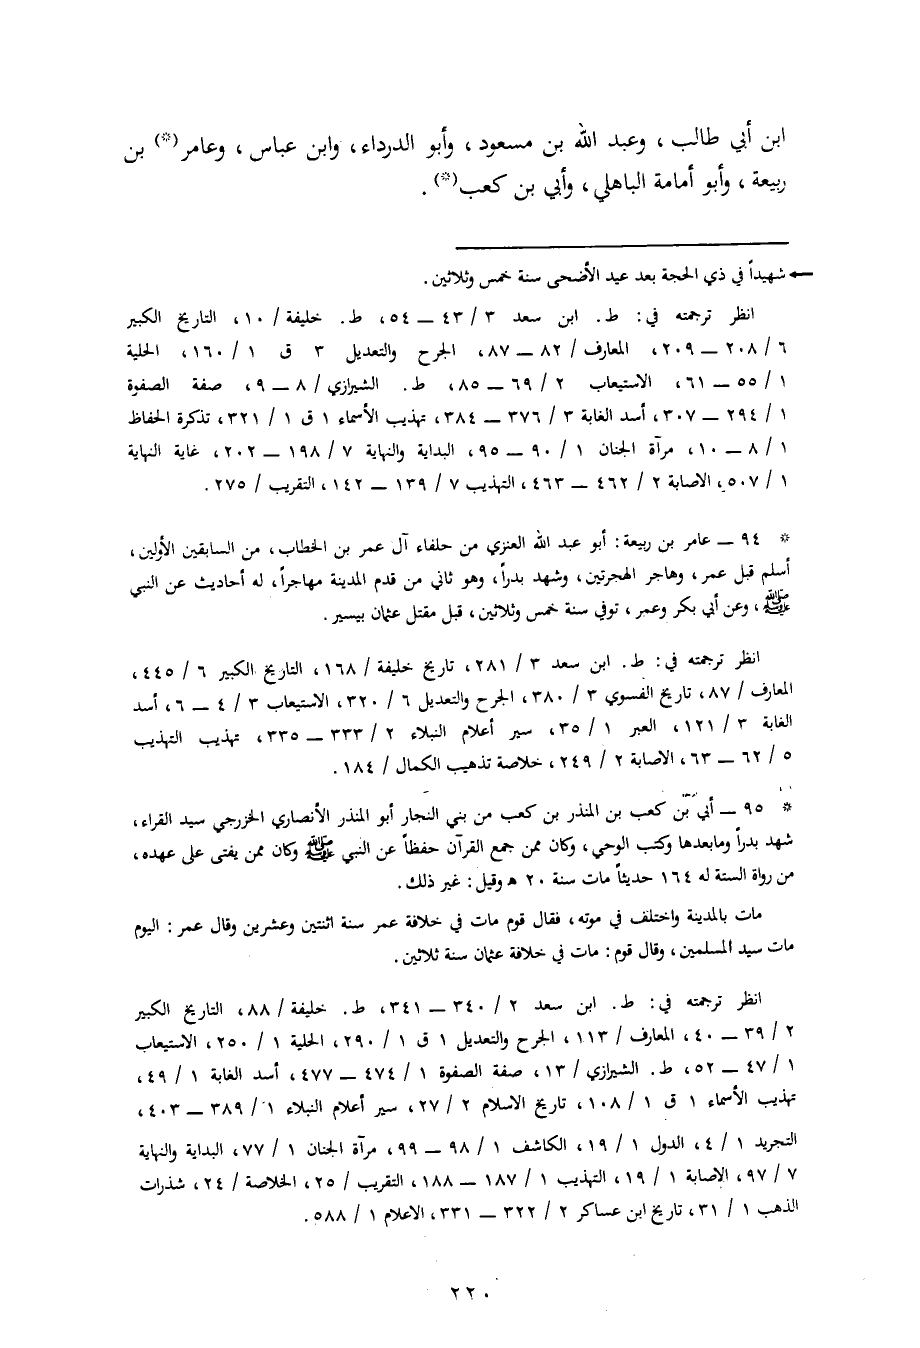 ابن أبي طالب ، وعبد الله بن مسعود ، وأبو الدرداء ، وابن عباس ، وعامر(*) بن
ربيعة ، وأبو أمامة الباهلي ، وأبي بن كعب(*) .
شهيداً في ذي الحجة بعد عيد الأضحى سنة خمس وثلاثين .
انظر ترجمته في : ط . ابن سعد ٣ / ٤٣ ــ ٥٤ ، ط . خليفة / ١٠ ، التاريخ الكبير
٦ / ٢٠٨ ــ ٢٠٩ ، المعارف / ٨٢ ــ ٨٧ ، الجرح والتعديل ٣ ق ١ / ١٦٠ ، الحلية
١ / ٥٥ ــ ٦١ ، الاستيعاب ٢ / ٦٩ ــ ٨٥ ، ط . الشيرازي / ٨ ــ ٩ ، صفة الصفوة
١ / ٢٩٤ ــ ٣٠٧ ، أسد الغابة ٣ / ٣٧٦ ــ ٣٨٤ ، تهذيب الأسماء ١ ق ١ / ٣٢١ ، تذكرة الحفاظ
١ / ٨ ــ ١٠ ، مرآة الجنان ١ / ٩٠ ــ ٩٥ ، البداية والنهاية ٧ / ١٩٨ ــ ٢٠٢ ، غاية النهاية
١ / ٥٠٧ ، الاصابة ٢ / ٤٦٢ ــ ٤٦٣ ، التهذيب ٧ / ١٣٩ ــ ١٤٢ ، التقريب / ٢٧٥ .
* ٩٤ ــ عامر بن ربيعة : أبو عبد الله العنزي من حلفاء آل عمر بن الخطاب ، من السابقين الأولين ،
أسلم قبل عمر ، وهاجر الهجرتين ، وشهد بدراً ، وهو ثاني من قدم المدينة مهاجراً ، له أحاديث عن النبي
ﷺ ، وعن أبي بكر وعمر ، توفي سنة خمس وثلاثين ، قبل مقتل عثمان بيسير .
انظر ترجمته في : ط . ابن سعد ٣ / ٢٨١ ، تاريخ خليفة / ١٦٨ ، التاريخ الكبير ٦ / ٤٤٥ ،
المعارف / ٨٧ ، تاريخ الفسوي ٣ / ٣٨٠ ، الجرح والتعديل ٦ / ٣٢٠ ، الاستيعاب ٣ / ٤ ــ ٦ ، أسد
الغابة ٣ / ١٢١ ، العبر ١ / ٣٥ ، سير أعلام النبلاء ٢ / ٣٣٣ ــ ٣٣٥ ، تهذيب التهذيب
٥ / ٦٢ ــ ٦٣ ، الاصابة ٢ / ٢٤٩ ، خلاصة تذهيب الكمال / ١٨٤ .
* ٩٥ ــ أبي بن كعب بن المنذر بن كعب من بني النجار أبو المنذر الأنصاري الخزرجي سيد القراء ،
شهد بدراً ومابعدها وكتب الوحي ، وكان ممن جمع القرآن حفظاً عن النبي ﷺ وكان ممن يفتى على عهده ،
من رواة الستة له ١٦٤ حديثاً مات سنة ٢٠ هـ وقيل : غير ذلك .
مات بالمدينة واختلف في موته ، فقال قوم مات في خلافة عمر سنة اثنتين وعشرين وقال عمر : اليوم
مات سيد المسلمين ، وقال قوم : مات في خلافة عثمان سنة ثلاثين .
انظر ترجمته في : ط . ابن سعد ٢ / ٣٤٠ ــ ٣٤١ ، ط . خليفة / ٨٨ ، التاريخ الكبير
٢ / ٣٩ ــ ٤٠ ، المعارف / ١١٣ ، الجرح والتعديل ١ ق ١ / ٢٩٠ ، الحلية ١ / ٢٥٠ ، الاستيعاب
١ / ٤٧ ــ ٥٢ ، ط . الشيرازي / ١٣ ، صفة الصفوة ١ / ٤٧٤ ــ ٤٧٧ ، أسد الغابة ١ / ٤٩ ،
تهذيب الأسماء ١ ق ١ / ١٠٨ ، تاريخ الاسلام ٢ / ٢٧ ، سير أعلام النبلاء ١ / ٣٨٩ ــ ٤٠٣ ،
التجريد ١ / ٤ ، الدول ١ / ١٩ ، الكاشف ١ / ٩٨ ــ ٩٩ ، مرآة الجنان ١ / ٧٧ ، البداية والنهاية
٧ / ٩٧ ، الاصابة ١ / ١٩ ، التهذيب ١ / ١٨٧ ــ ١٨٨ ، التقريب / ٢٥ ، الخلاصة / ٢٤ ، شذرات
الذهب ١ / ٣١ ، تاريخ ابن عساكر ٢ / ٣٢٢ ــ ٣٣١ ، الاعلام ١ / ٥٨٨ .
٢٢٠